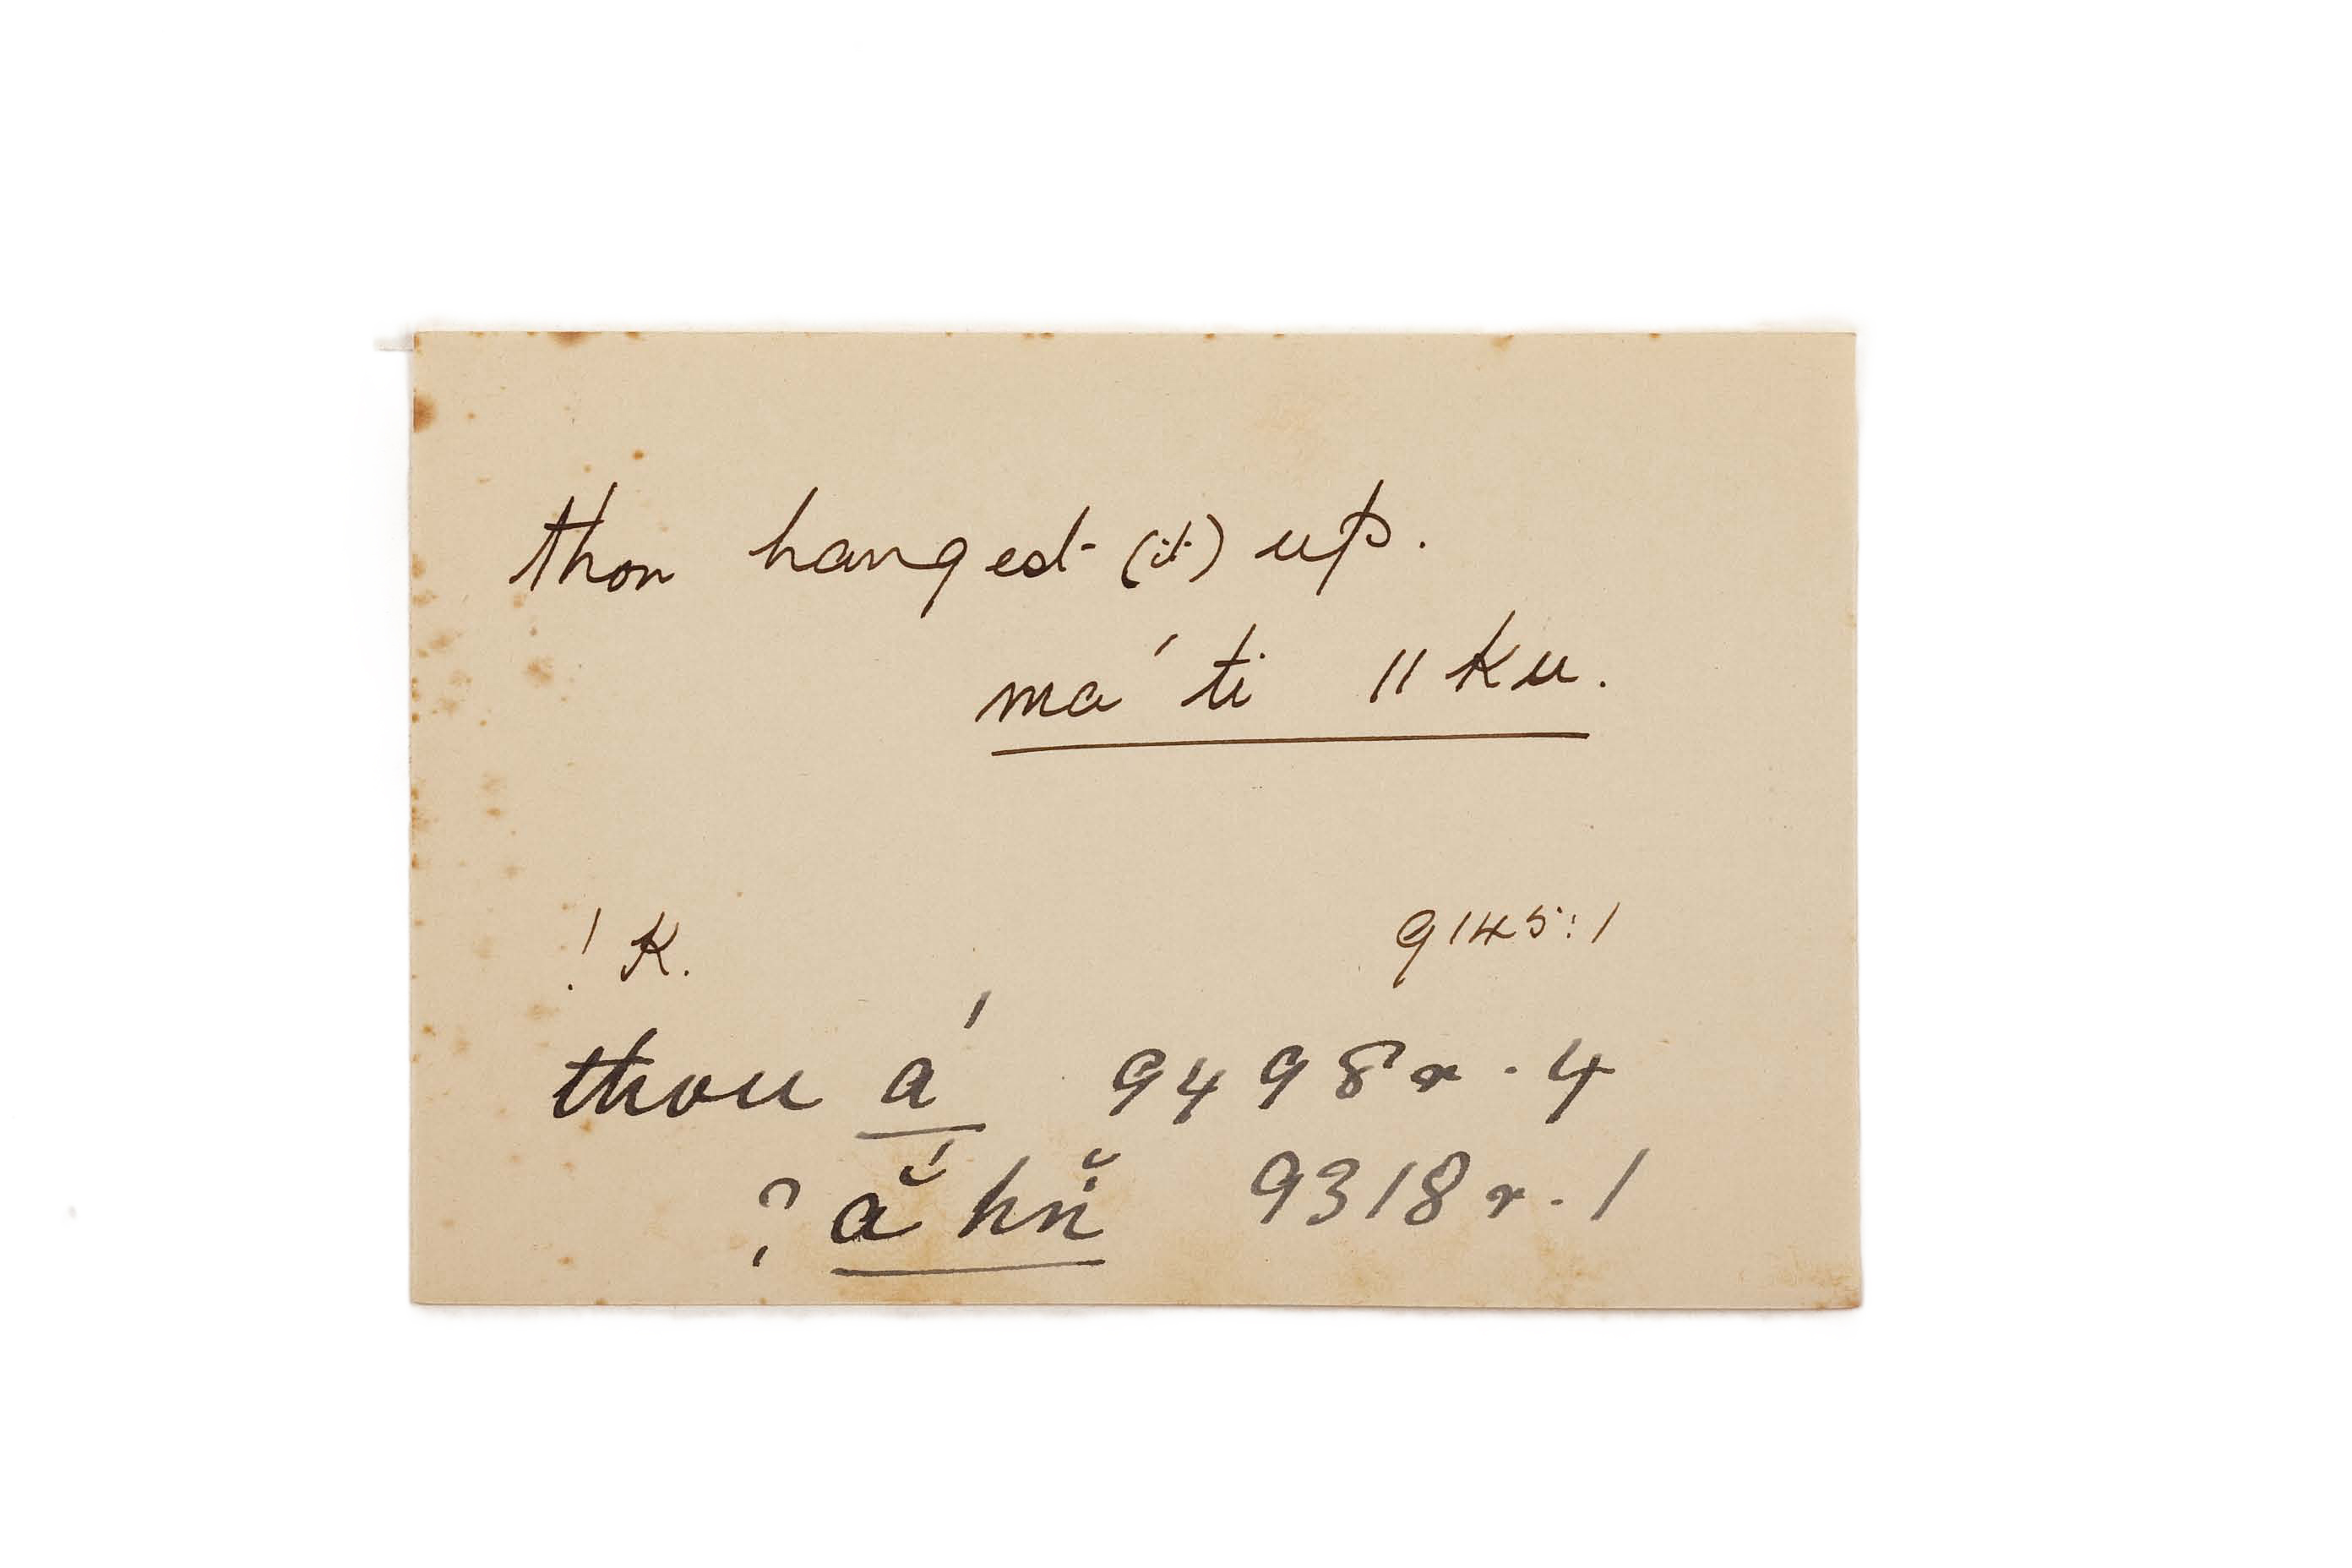 thou hangedst (it) up.
ma´ ti ǁku.
! K. 9145:1
thou á 9498 r. 4
? ắ hň 9318 r. 1